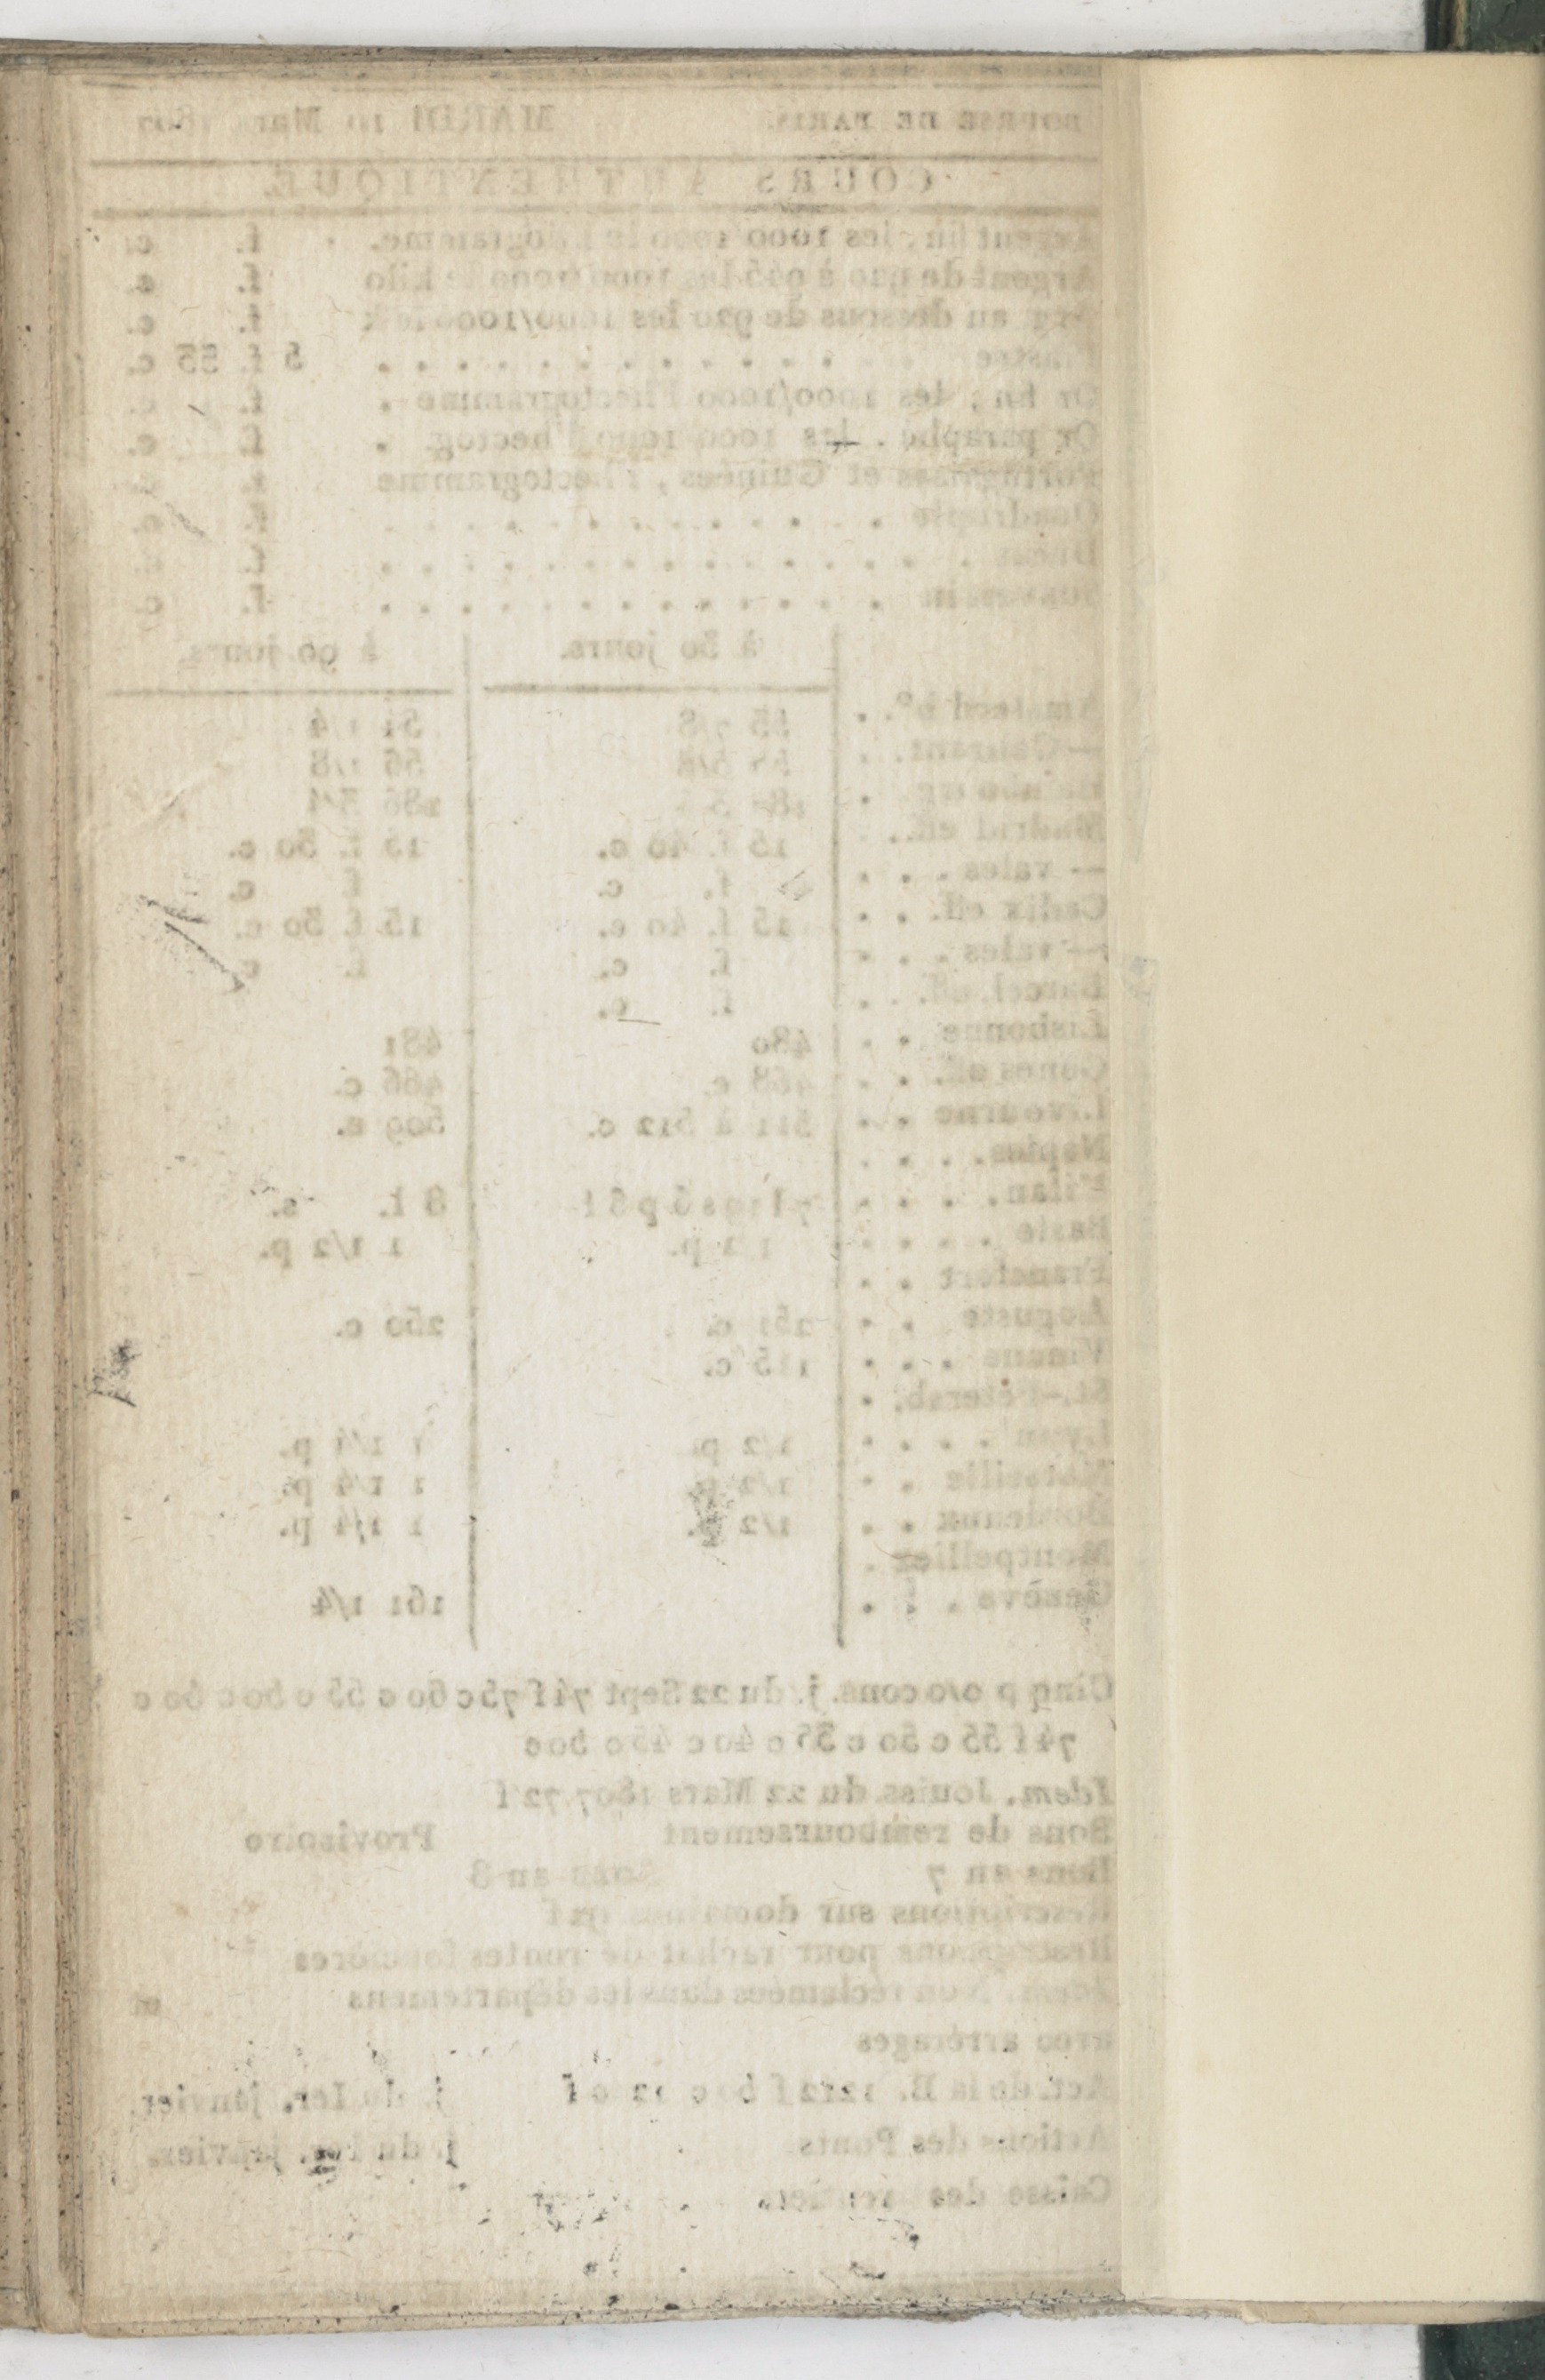 BOURSE DE PARIS. MARDI 10 Mars 1807
COURS AUTHENTIQUE
Argent fin, les 1000/1000 le kilogramme. f. c.
Argent de 920 à 945 les 1000/1000 le kilo f. c.
Arg. au dessous de 920 les 1000/1000 le k f. c.
Piastre . . . . . . . . . . . . 5 f. 35 c.
Or fin, les 1000/1000 l'hectogramme . f. c.
Or paraphé. les 1000/1000 l'hectog. . f. c.
Portugaises et Guinées, l'hectogramme f. c.
Quadruple . . . . . . . . . . . . f. c.
Ducat . . . . . . . . . . . . . f. c.
Souverain . . . . . . . . . . . . f. c.
à 30 jours. à 90 jours.
Amsterd bº. . 55 7/8
— Courant. . 56 1/8
Hambourg . 186 3/4
Madrid eff. . 15 f. 40 c. 15 f. 30 c.
— vales . . . f. c. f. c.
Cadix eff. . . 15 f. 40 c. 15 f. 30 c.
— vales . . . f. c. f. c.
Barcel. eff. . . f. c.
Lisbonne . . 480 481
Gênes eff. . . 468 c. 466 c.
Livourne . . 511 à 512 c. 509 c.
Naples. . . .
Milan. . . . . 8 l. s.
Basle . . . . . 1/2 p. 1 1/2 p.
Francfort . .
Auguste . . 251 c. 250 c.
Vienne . . . 115 c.
St.-Pétersb. .
Lyon . . . . 1/2 p. 1 1/4 p.
Marseille . . 1/2 p. 1 1/4 p.
Bordeaux . . 1/2 p. 1 1/4 p.
Montpellier .
Genève . . . 161 1/4
Cinq p 0/0 cons. j. du 22 Sept 74 f 75 c 60 c 55 c 50 c 60 c
74 f 55 c 50 c 35 c 40 c 45 c 50 c
Idem. Jouiss. du 22 Mars 1807 72 f
Bons de remboursement Provisoire
Bons an 7 Bons an 8
Rescriptions sur domaines 91 f
Rescriptions pour rachat de rentes foncières
Idem. Non réclamées dans les départemens
avec arrérages
Act. de la B. 1212 f 50 c j. du 1er. janvier.
Actions des Ponts j. du 1er. janvier.
Caisse des rentiers